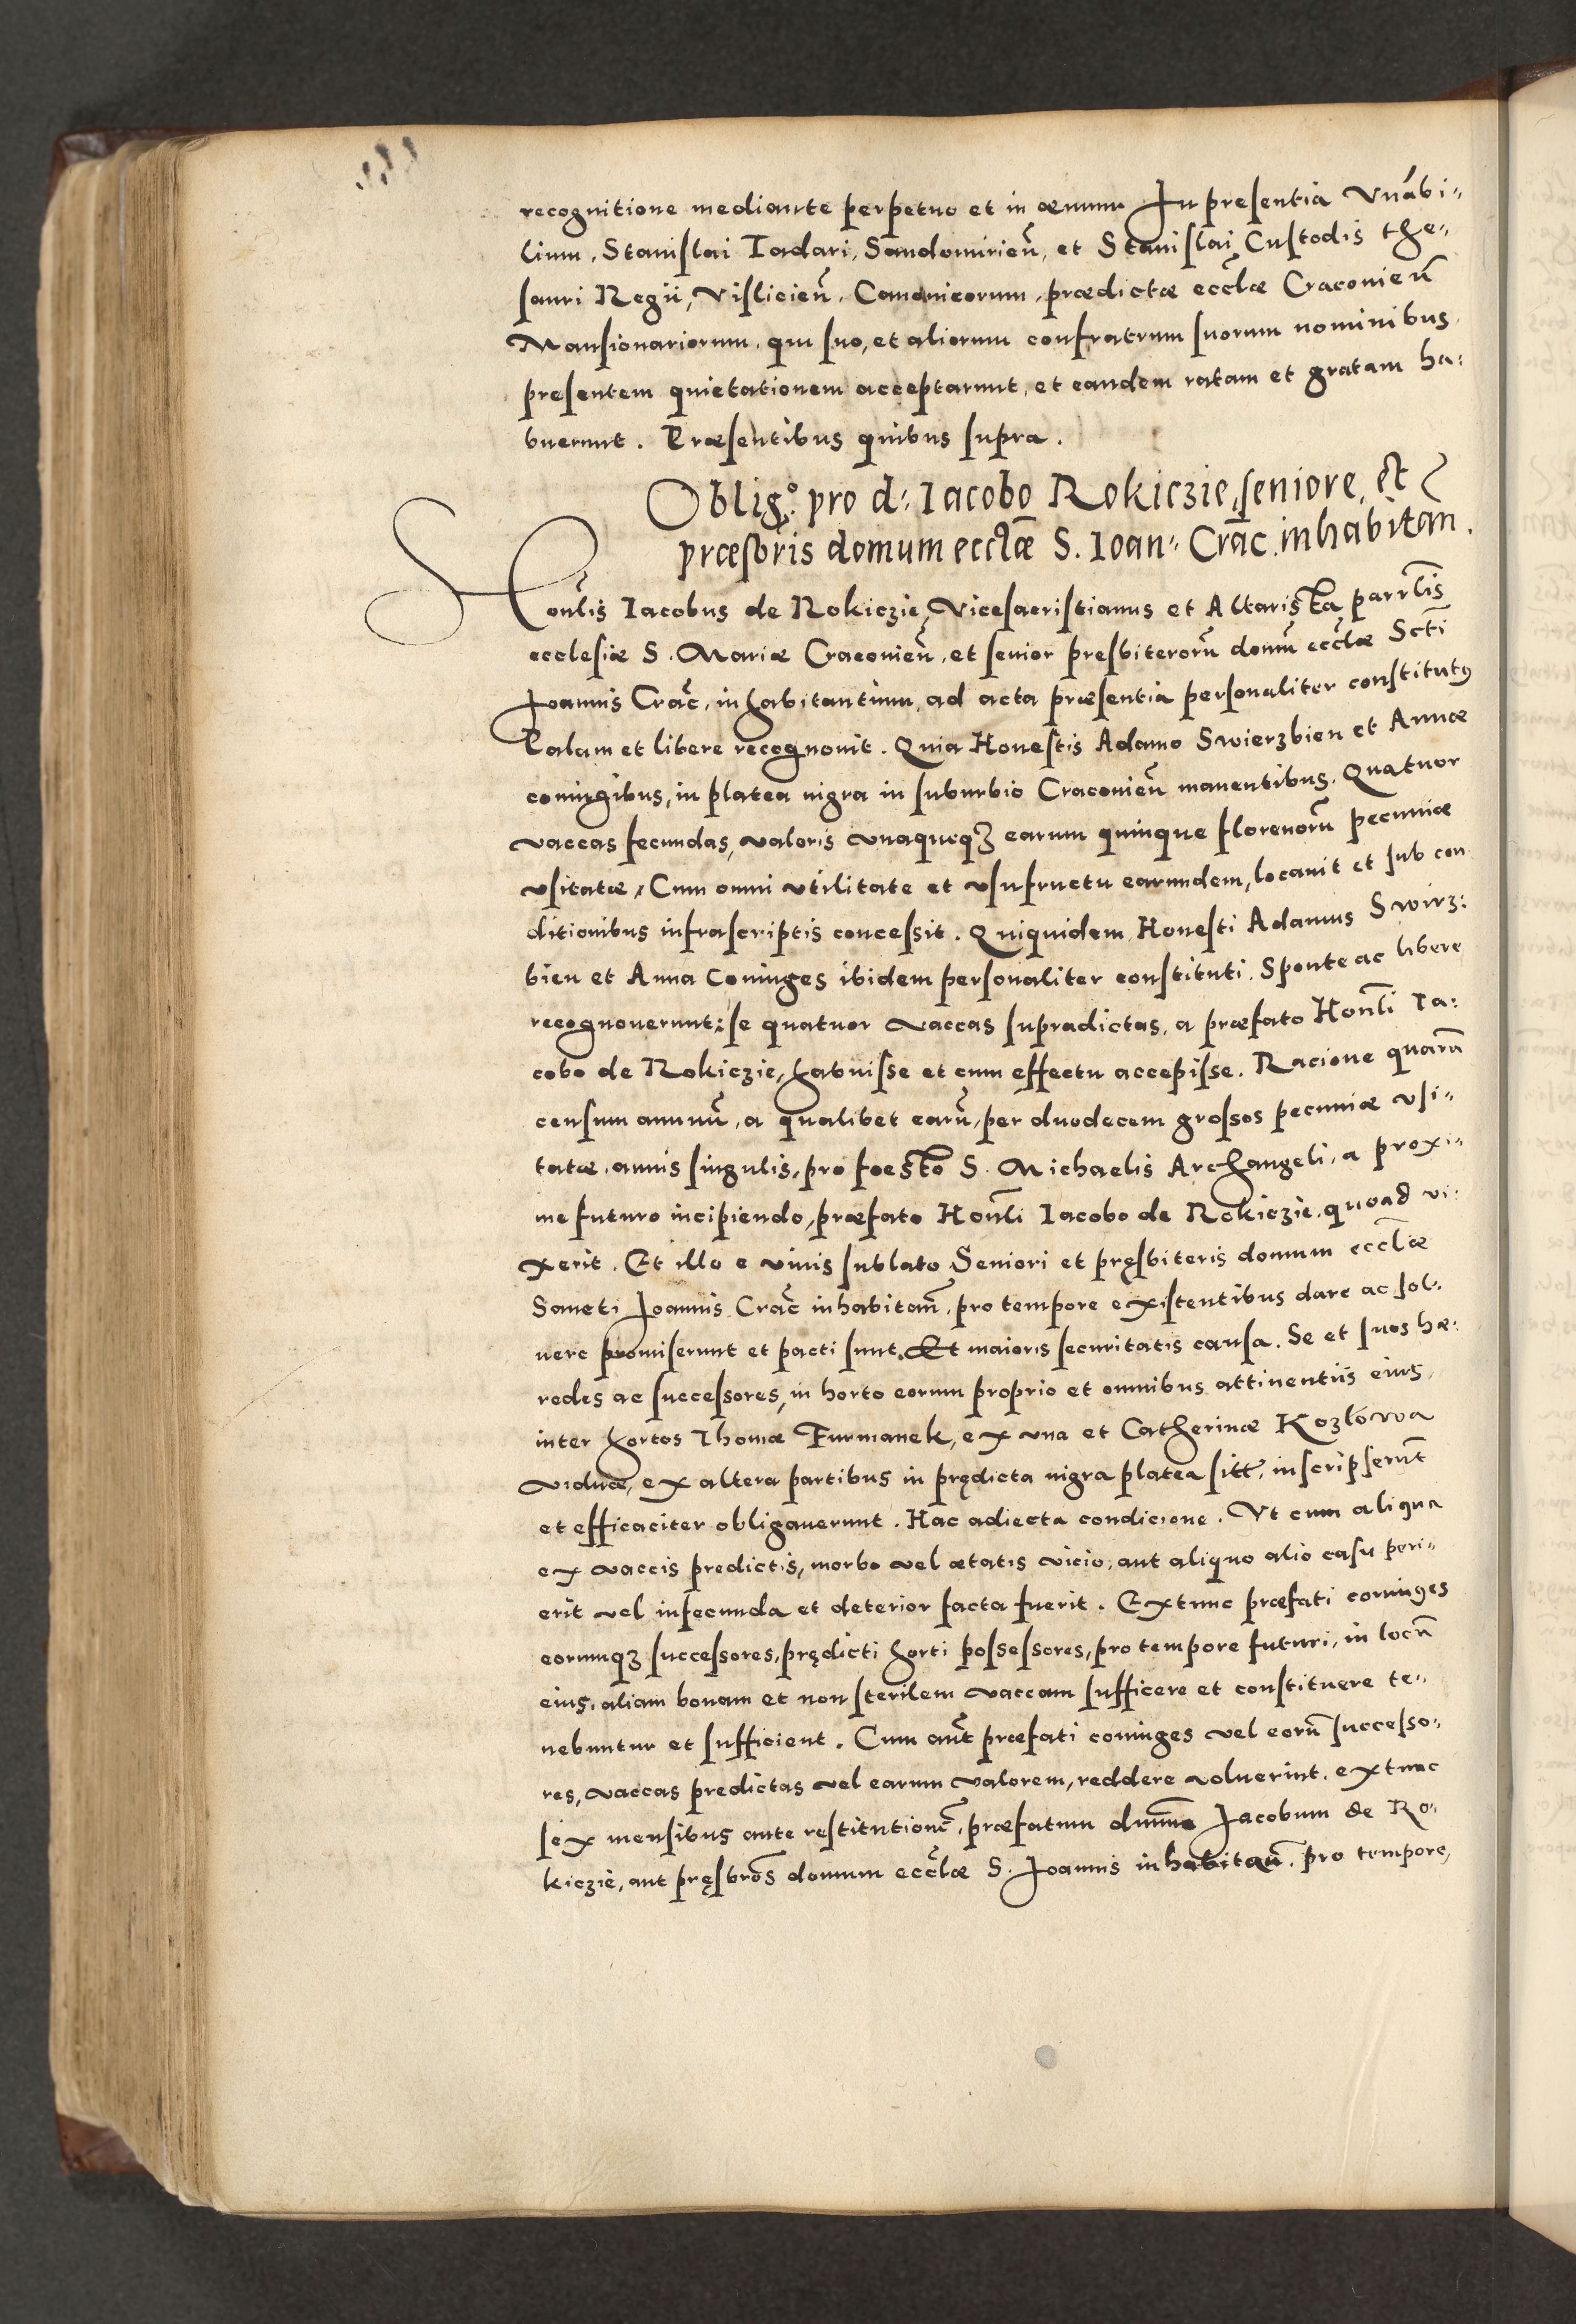 recognitione mediante perpetuo et in æuum In presentia Vnãbi-
lium, Stanislai Iadari, Sandomirieñ, et Stanislai Custodis the-
sauri Regii, Visliciеñ, Canonicorum, prædictæ eccl̃æ Craconieñ
Mansionariorum, qui suo, et aliorum confratrum suorum nominibus,
presentem quietationem acceptarunt, et eandem ratam et gratam ha-
buerunt. Præsentibus quibus supra.
Oblig.º pro d: Iacobo Rokiczie, seniore, et
præsb̃ris domum eccl̃æ S. Ioan: Crãc. inhabitan.
Honl̃is Iacobus de Rokiczie, Vicesacristianus et Altarista parrl̃is
ecclesiæ S. Mariæ Craconieñ, et senior presbiterorũ domũ eccl̃æ Sct̃i
Joannis Crac̃, inhabitantium, ad acta præsentia personaliter constitutꝰ
Palam et libere recognouit. Quia Honestis Adamo Swierzbien et Annæ
coniugibus, in platea nigra in suburbio Craconieñ manentibus. Quatuor
vaccas fecundas, valoris vnaqueqꝫ earum quinque florenorũ pecuniæ
vsitatæ, Cum omni vtilitate et vsufructu earundem, locauit et sub con
ditionibus infrascriptis concessit. Quiquidem Honesti Adamus Swirz-
bien et Anna Coniuges ibidem personaliter constituti. Sponte ac libere
recognouerunt: se quatuor vaccas supradictas, a præfato Honl̃i Ia-
cobo de Rokiczie, habuisse et cum effectu accepisse. Racione quarũ
censum annuũ, a qualibet earũ, per duodecem grossos pecuniæ vsi-
tatæ, annis singulis, pro foesto S. Michaelis Archangeli, a proxi-
me futuro incipiendo, præfato Honl̃i Iacobo de Rokiczie, quoad vi-
xerit. Et illo e viuis sublato Seniori et pręsbiteris domum eccl̃æ
Sancti Joannis Crac̃ inhabitañ, pro tempore existentibus dare ac sol-
uere promiserunt et pacti sunt. Et maioris securitatis causa. Se et suos hæ-
redes ac successores, in horto eorum proprio et omnibus attinentiis eius,
inter hortos Thomæ Furmanek, ex vna et Catherinæ Kozłowa
viduæ, ex altera partibus in prędicta nigra platea sitt, inscripserũt
et efficaciter obligauerunt. Hac adiecta condicione. Vt cum aliqua
ex vaccis predictis, morbo vel ætatis vicio, aut aliquo alio casu peri-
erit vel infecunda et deterior facta fuerit. Extunc præfati coniuges
eorumqꝫ successores, prędicti horti possessores, pro tempore futuri, in locũ
eius, aliam bonam et non sterilem vaccam sufficere et constituere te-
nebuntur et sufficient. Cum aut̃ præfati coniuges vel eorũ successo-
res, vaccas predictas vel earum valorem, reddere voluerint, extunc
sex mensibus ante restitutionẽ, præfatum dnum̃ Jacobum de Ro-
kiczie, aut pręsbrõs domum eccl̃æ S. Joannis inhabitañ, pro tempore,